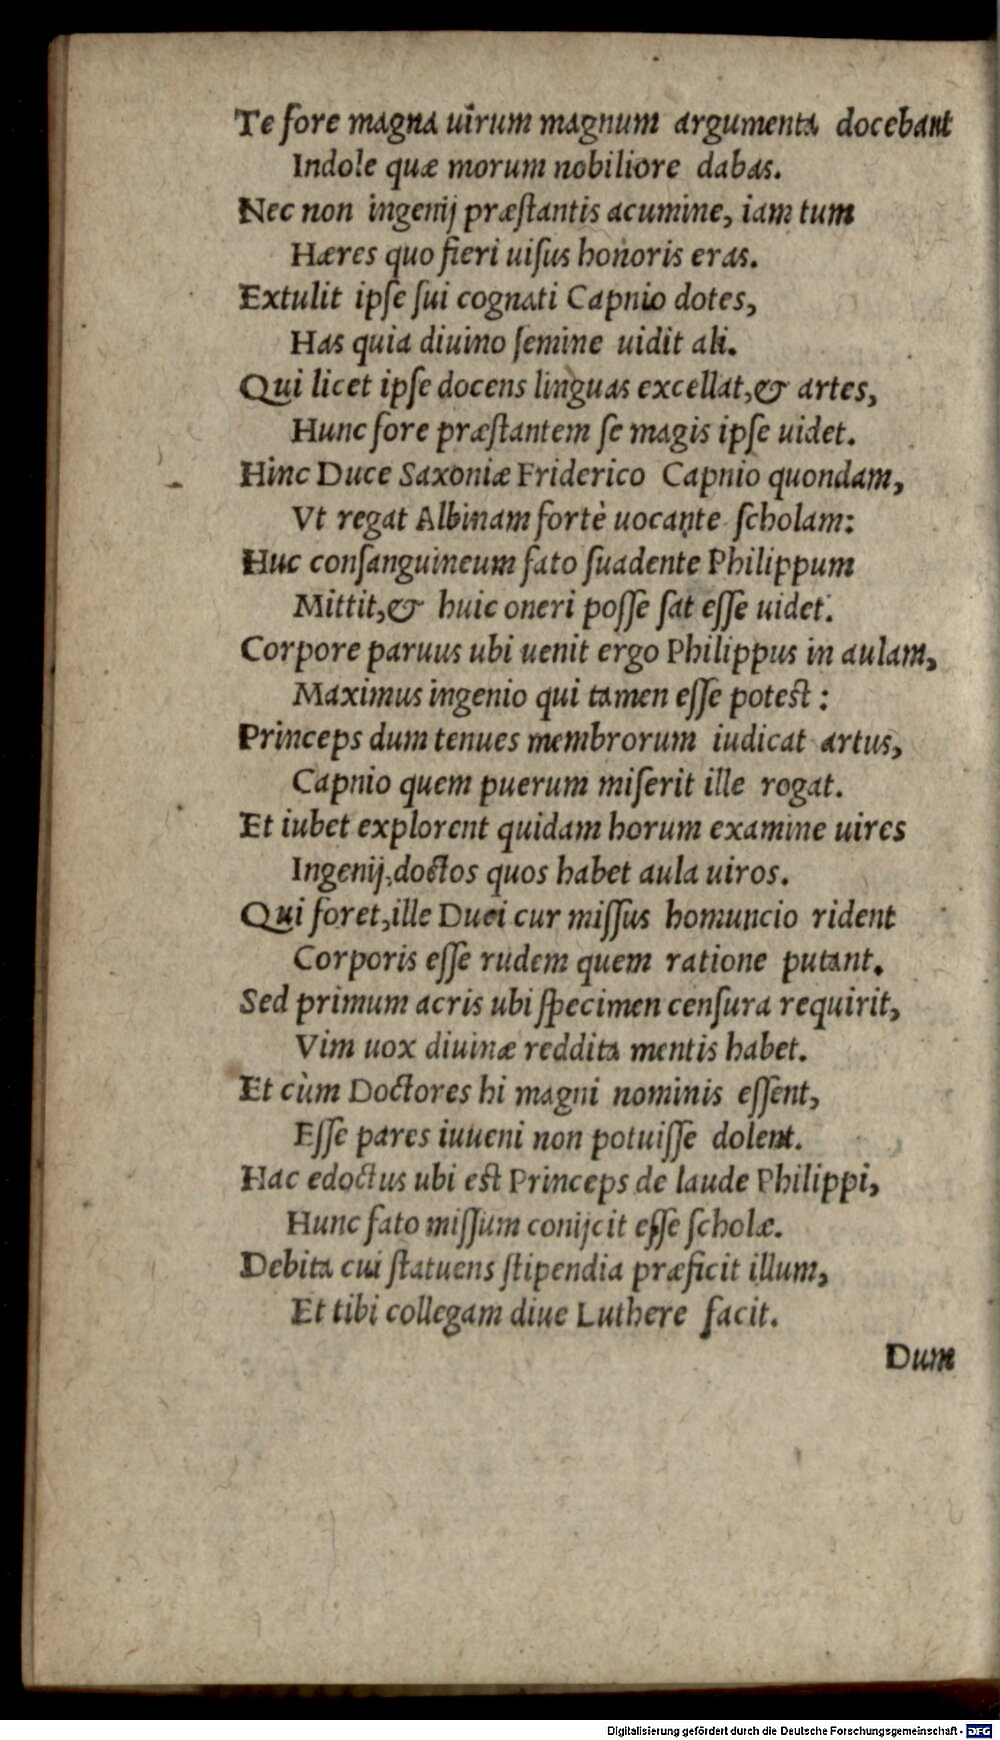 Te fore magna uirum magnum argumenta docebant
Indole quæ morum nobiliore dabas.
Nec non ingenij præſtantis acumine, iam tum
Hæres quo fieri uiſus honoris eras.
Extulit ipſe ſui cognati Capnio dotes,
Has quia diuino ſemine uidit ali.
Qui licet ipſe docens linguas excellat,& artes,
Hunc fore præſtantem ſe magis ipſe uidet.
Hinc Duce Saxoniæ Friderico Capnio quondam,
Vt regat Albinam fortè uocante ſcholam:
Huc conſanguineum fato ſuadente Philippum
Mittit,& huic oneri poſſe ſat eſſe uidet.
Corpore paruus ubi uenit ergo Philippus in aulam,
Maximus ingenio qui tamen eſſe poteſt:
Princeps dum tenues membrorum iudicat artus,
Capnio quem puerum miſerit ille rogat.
Et iubet explorent quidam horum examine uires
Ingenij,doctos quos habet aula uiros.
Qui foret,ille Duci cur miſſus homuncio rident
Corporis eſſe rudem quem ratione putant.
Sed primum acris ubi ſpecimen cenſura requirit,
Vim uox diuinæ reddita mentis habet.
Et cùm Doctores hi magni nominis eſſent,
Eſſe pares iuueni non potuiſſe dolent.
Hac edoctus ubi eſt Princeps de laude Philippi,
Hunc fato miſſum conijcit eſſe ſcholæ.
Debita cui ſtatuens ſtipendia præficit illum,
Et tibi collegam diue Luthere facit.
Dum
Digitalisierung gefördert durch die Deutsche Forschungsgemeinschaft - DFG